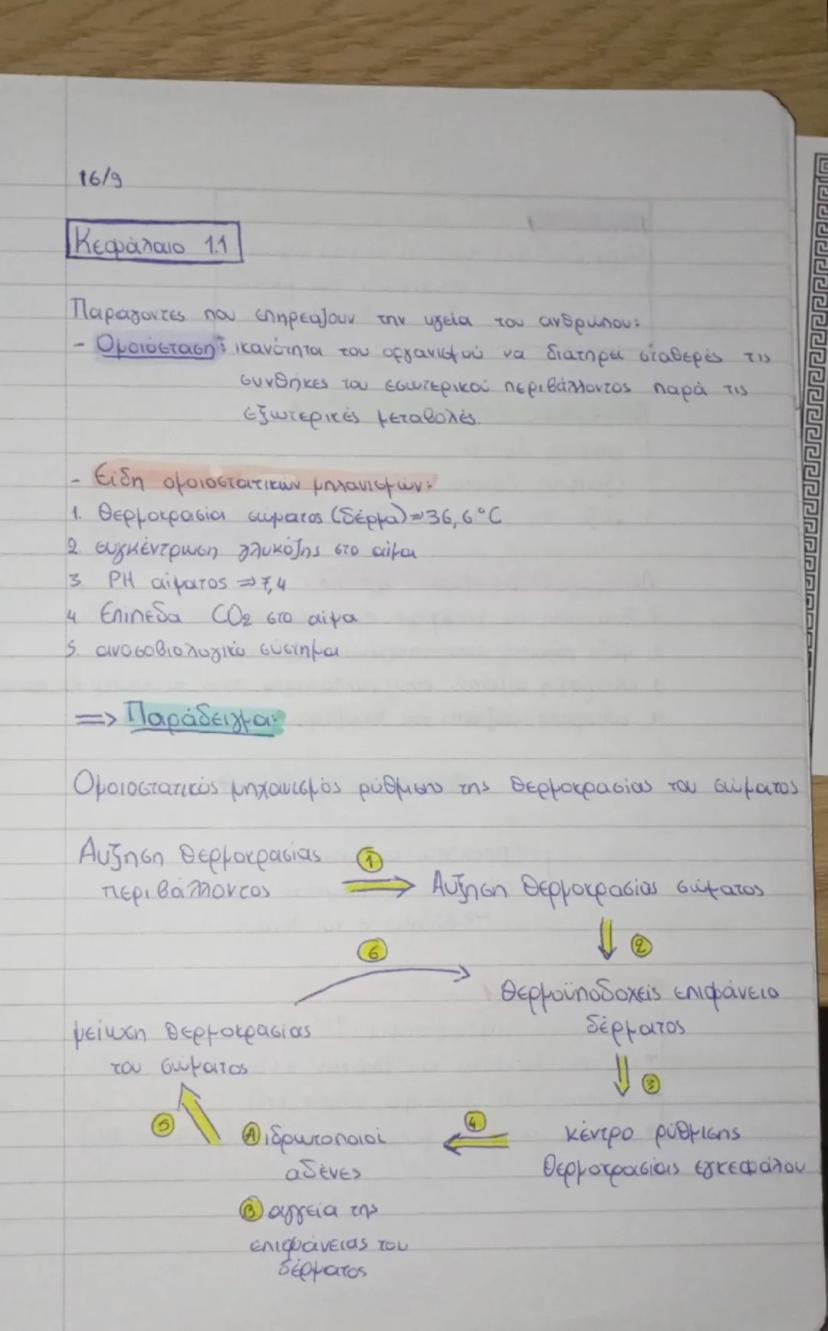 16/9
Κεφάλαιο 1.1
Παράγοντες που επηρεάζουν την υγεία του ανθρώπου:
- Ομοιόσταση: ικανότητα του οργανισμού να διατηρεί σταθερές τις
συνθήκες του εσωτερικού περιβάλλοντος παρά τις
εξωτερικές μεταβολές.
- Είδη ομοιοστατικών μηχανισμών:
1. Θερμοκρασία σώματος (δέρμα) => 36,6°C
2. συγκέντρωση γλυκόζης στο αίμα
3. PH αίματος => 7,4
4. Επίπεδα CO2 στο αίμα
5. ανοσοβιολογικό σύστημα
=> Παράδειγμα:
Ομοιοστατικός μηχανισμός ρύθμισης της θερμοκρασίας του σώματος
Αύξηση θερμοκρασίας
περιβάλλοντος
1
Αύξηση θερμοκρασίας σώματος
2
6
Θερμοϋποδοχείς επιφάνεια
δέρματος
μείωση θερμοκρασίας
του σώματος
3
5
4
κέντρο ρύθμισης
θερμοκρασίας εγκεφάλου
Α ιδρωτοποιοί
αδένες
Β αγγεία της
επιφάνειας του
δέρματος